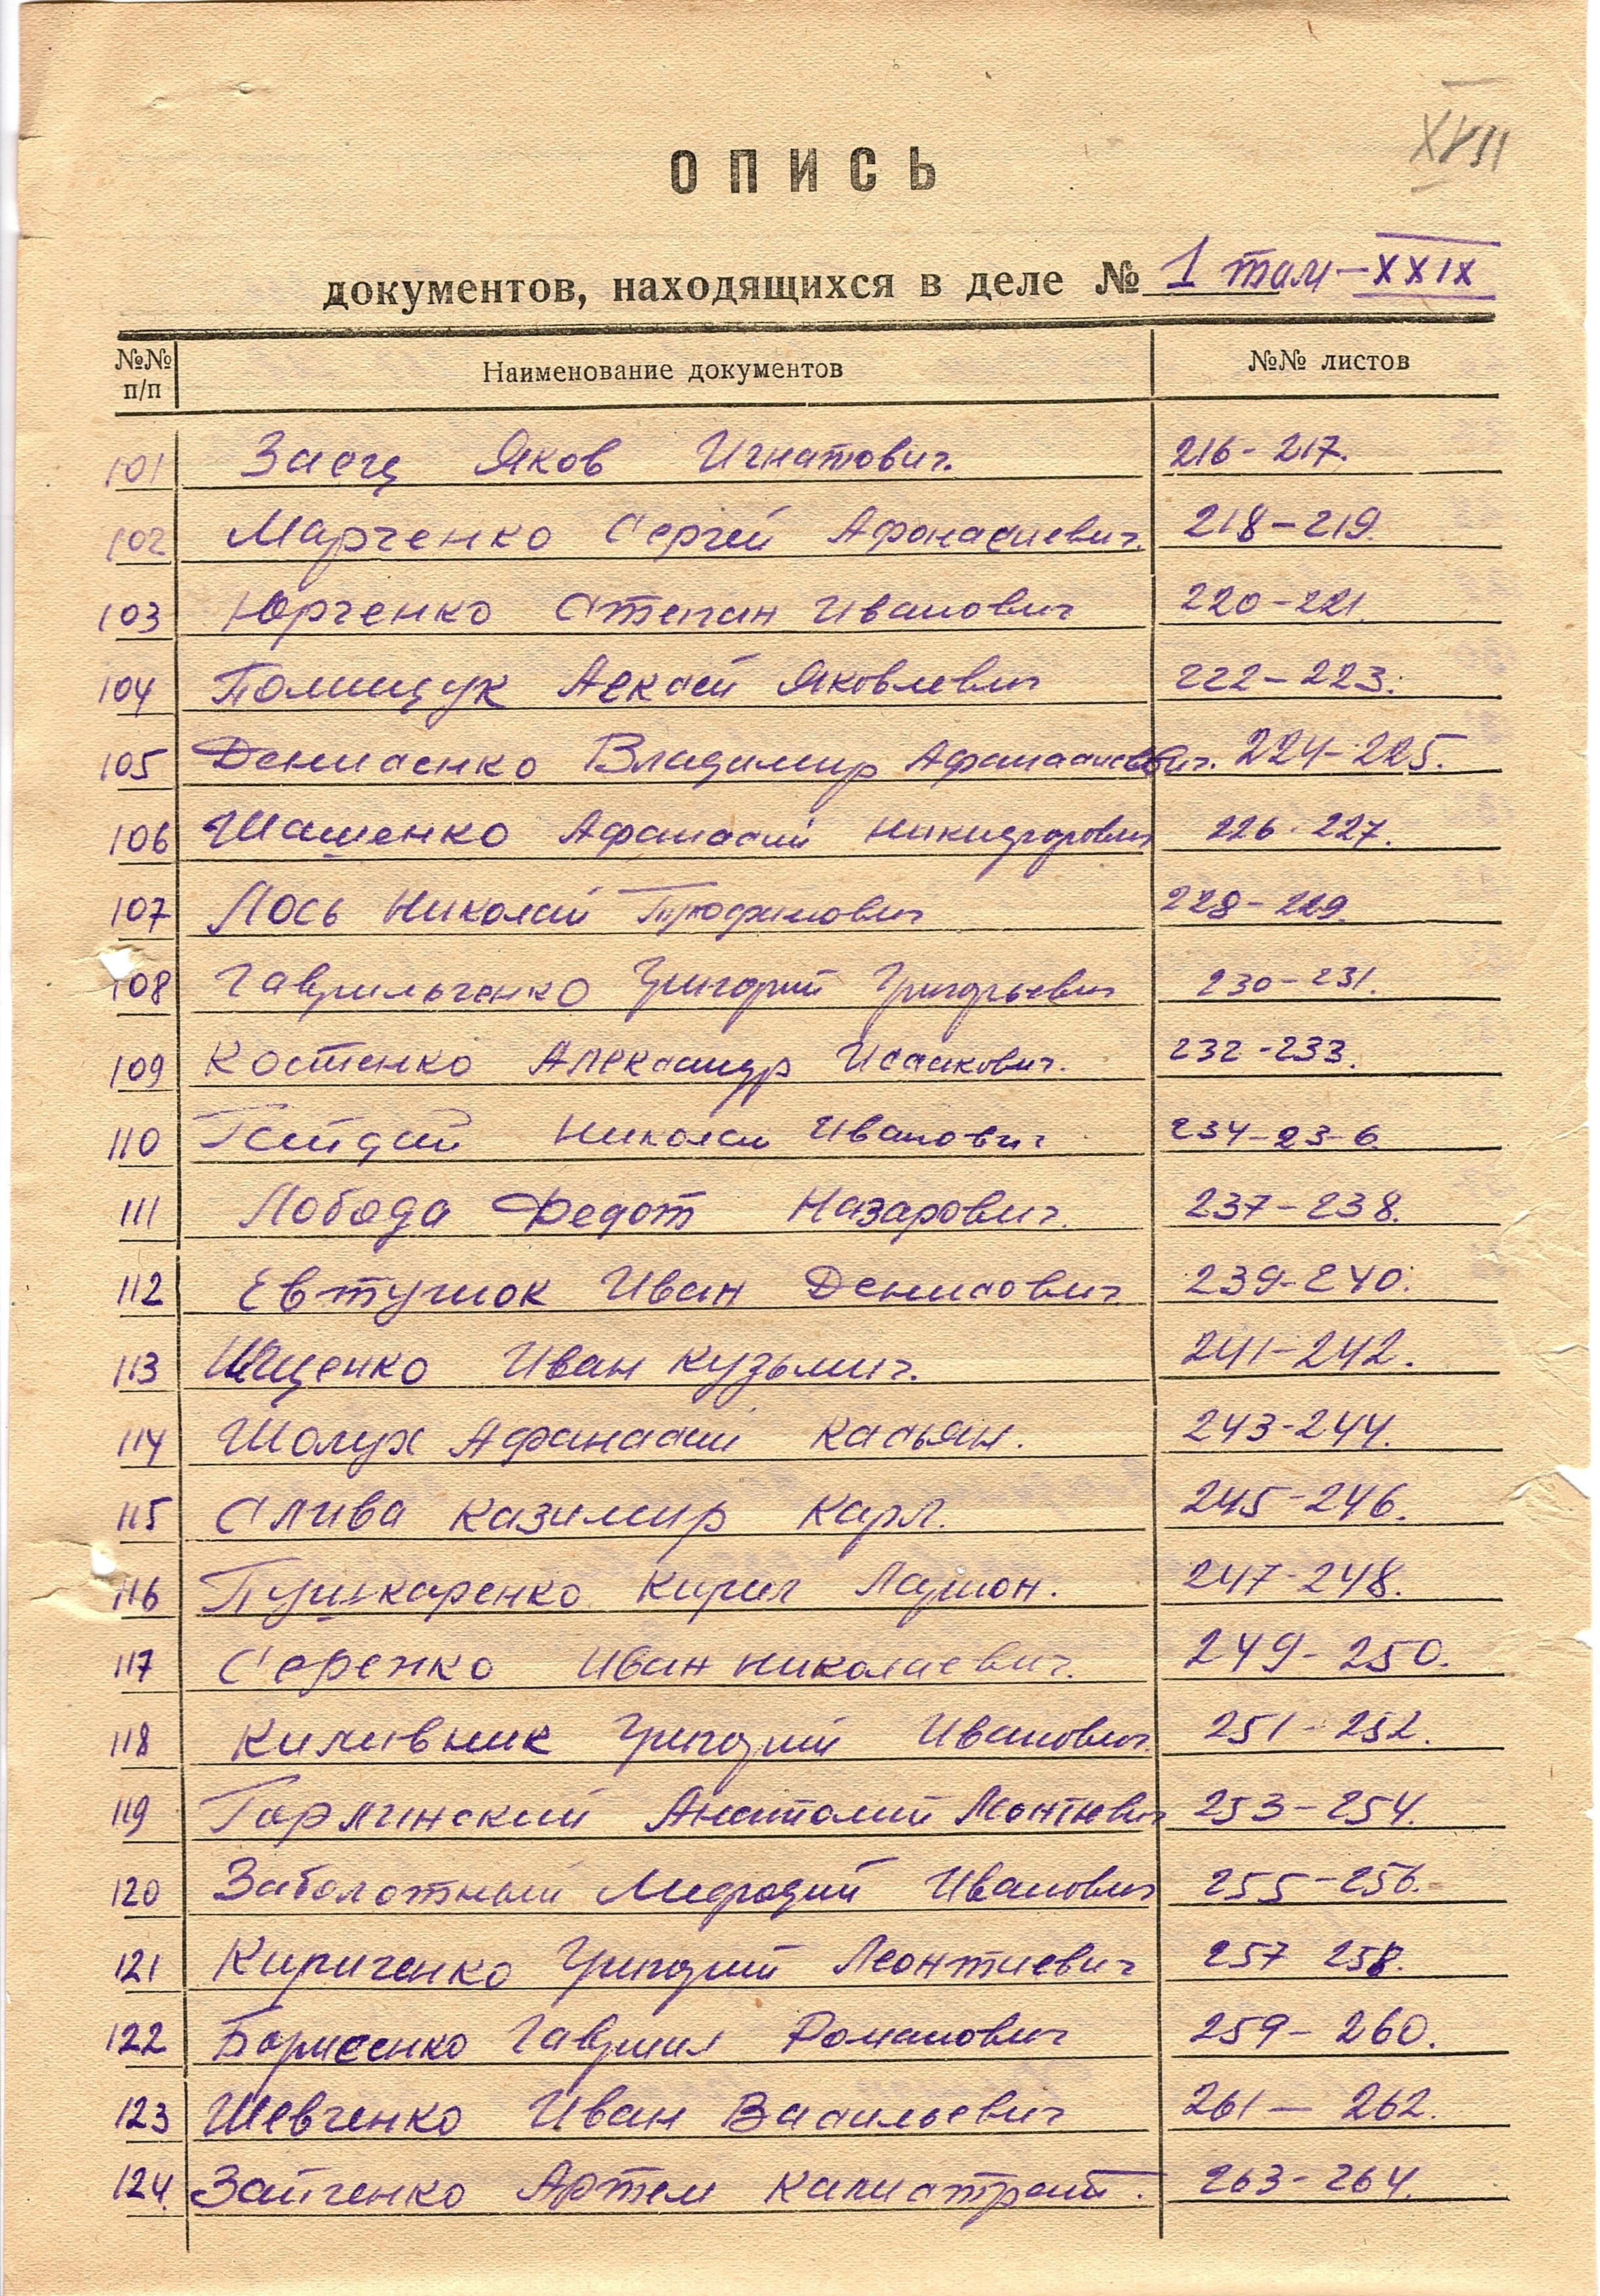 XVII
ОПИСЬ
документов, находящихся в деле № 1 том-XXIX
№№ п/п Наименование документов №№ листов
101 Заец Яков Игнатович. 216-217.
102 Марченко Сергей Афонасиевич. 218-219.
103 Юрченко Степан Иванович 220-221.
104 Полищук Алексей Яковлевич 222-223.
105 Денисенко Владимир Афанасиевич. 224-225.
106 Шашенко Афанасий Никифорович 226-227.
107 Лось Николай Трофимович 228-229.
108 Гаврильченко Григорий Григорьевич 230-231.
109 Костенко Александр Исакович. 232-233.
110 Гайдай Николай Иванович 234-236.
111 Лобода Федот Назарович. 237-238.
112 Евтушок Иван Денисович 239-240.
113 Ищенко Иван Кузьмич. 241-242.
114 Шолух Афанасий Касьян. 243-244.
115 Слива Казимир Карл. 245-246.
116 Пушкаренко Кирил Ларион. 247-248.
117 Серенко Иван Николаевич. 249-250.
118 Киливник Григорий Иванович. 251-252.
119 Горлинский Анатолий Леонтевич 253-254.
120 Заболотный Мефодий Иванович 255-256.
121 Кириченко Григорий Леонтиевич 257 258.
122 Борисенко Гаврил Романович 259-260.
123 Шевченко Иван Васильевич 261-262.
124. Зайченко Артем Калистрат. 263-264.